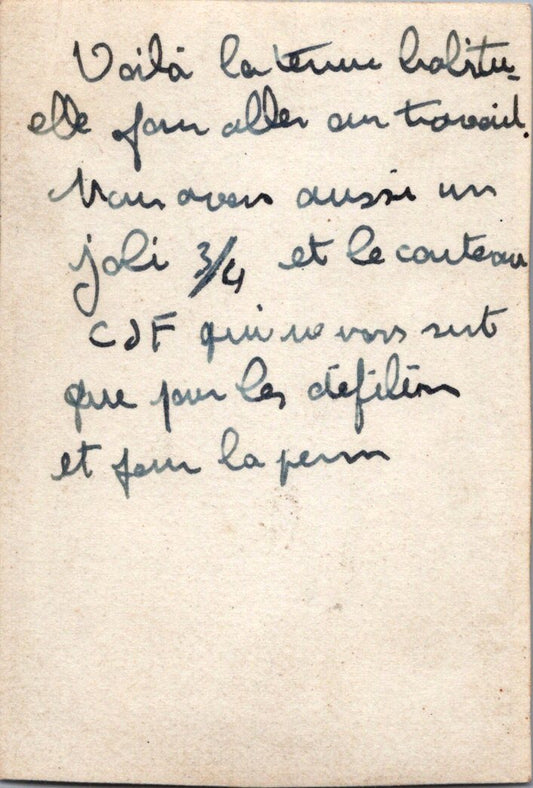 Voilà la tenue habitu-
elle pour aller au travail.
Nous avons aussi un
joli 3/4 et le couteau
CJF qui ne nous sert
que pour les défilés
et pour la perm